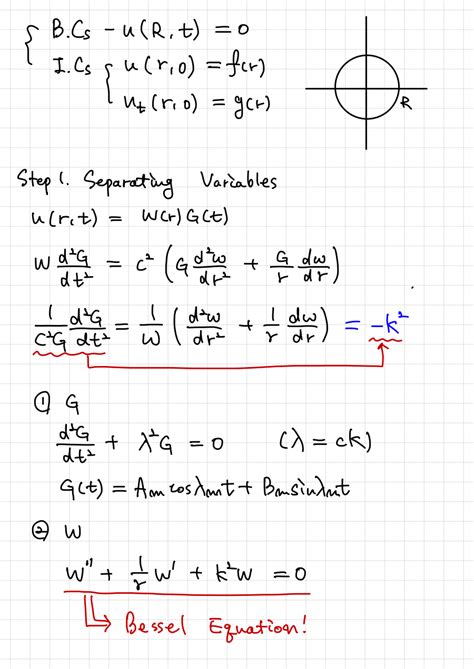 B.Cs - u(R, t) = 0
I.Cs u(r, 0) = f(r)
u_t(r, 0) = g(r)
R
Step 1. Separating Variables
u(r,t) = W(r)G(t)
W d²G/dt² = c² (G d²w/dr² + G/r dw/dr)
1/C²G d²G/dt² = 1/W (d²w/dr² + 1/r dw/dr) = -k²
① G
d²G/dt² + λ²G = 0 (λ = ck)
G(t) = Am cosλmt + Bm sinλmt
② W
W'' + 1/r W' + k²W = 0
Bessel Equation!